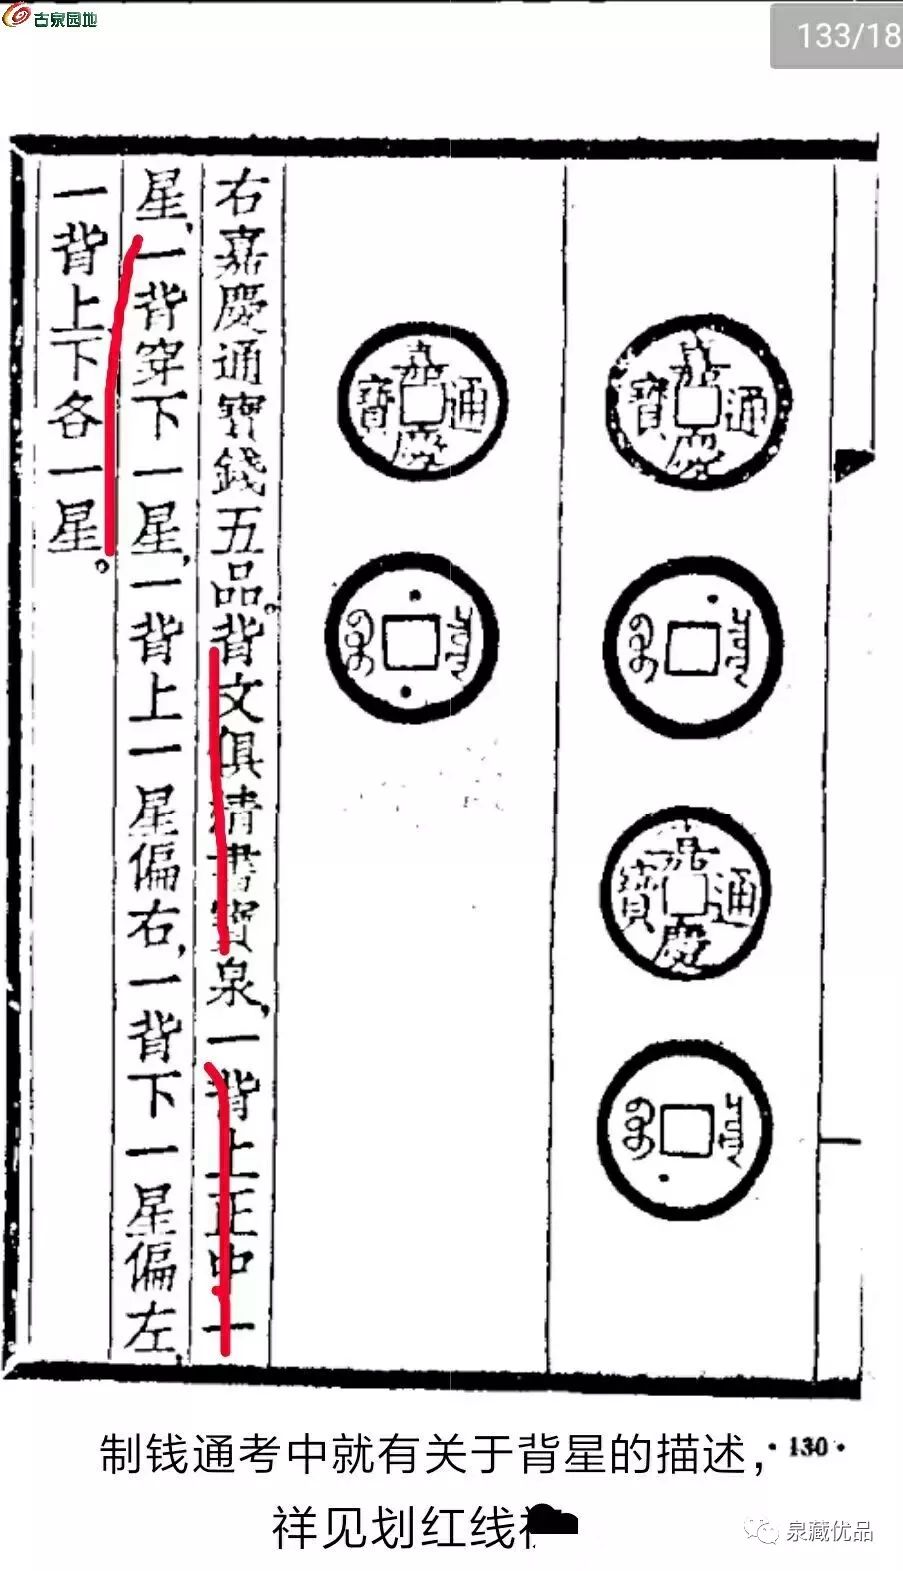 古泉园地
133/18
嘉慶通寶
嘉慶通寶
嘉慶通寶
右嘉慶通寶錢五品。背文俱清書寶泉，一背上正中一
星，一背穿下一星，一背上一星偏右，一背下一星偏左，
一背上下各一星。
制钱通考中就有关于背星的描述，
·130·
祥见划红线
泉藏优品